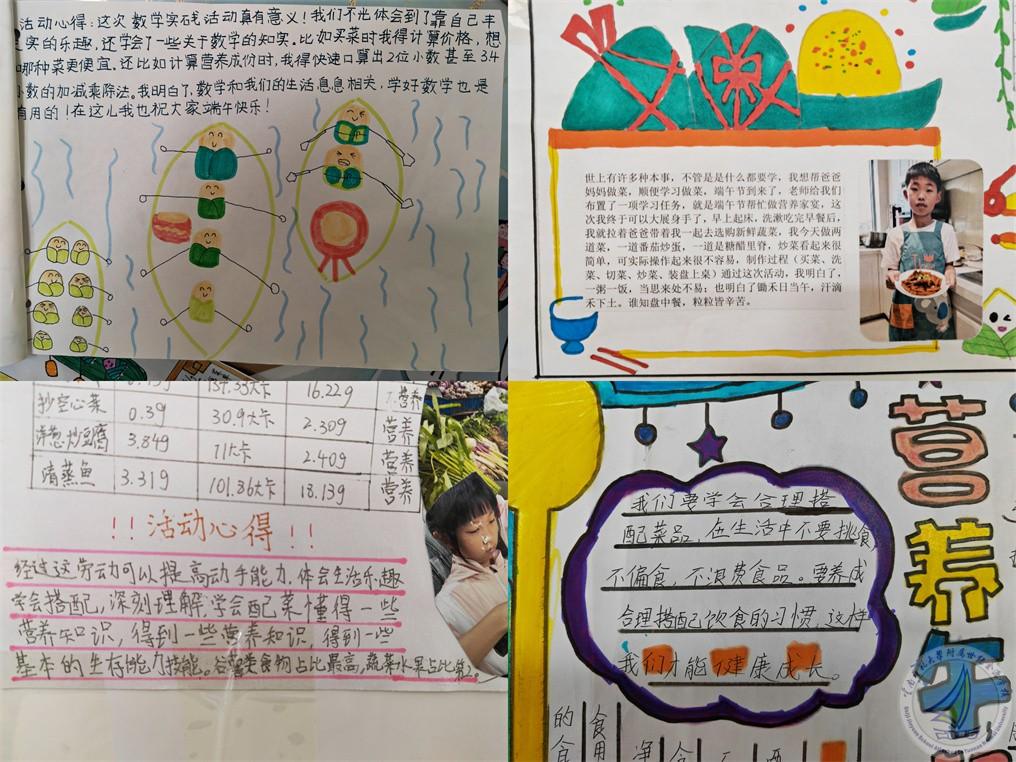 活动心得：这次数学实践活动真有意义！我们不光体会到了靠自己丰
实的乐趣，还学会了一些关于数学的知实。比如买菜时我得计算价格，想
哪种菜更便宜。还比如计算营养成份时，我得快速口算出2位小数甚至34
小数的加减乘除法。我明白了，数学和我们的生活息息相关，学好数学也是
有用的！在这儿我也祝大家端午快乐！
世上有许多种本事，不管是是什么都要学，我想帮爸爸
妈妈做菜，顺便学习做菜，端午节到来了，老师给我们
布置了一项学习任务，就是端午节帮忙做营养家宴，这
次我终于可以大展身手了，早上起床，洗漱吃完早餐后，
我就拉着爸爸带着我一起去选购新鲜蔬菜，我今天做两
道菜，一道番茄炒蛋，一道是糖醋里脊，炒菜看起来很
简单，可实际操作起来很不容易，制作过程（买菜、洗
菜、切菜、炒菜、装盘上桌）通过这次活动，我明白了，
一粥一饭，当思来处不易；也明白了锄禾日当午，汗滴
禾下土。谁知盘中餐，粒粒皆辛苦。
134.33大卡 16.22g 营养
抄空心菜 0.39 30.9大卡 2.30g 营养
洋葱炒豆腐 3.84g 71大卡 2.40g 营养
清蒸鱼 3.31g 101.36大卡 18.13g 营养
!!活动心得!!
经过这劳动可以提高动手能力，体会生活乐趣
学会搭配，深刻理解，学会配菜懂得一些
营养知识，得到一些营养知识，得到一些
基本的生存能力技能。谷薯类食物占比最高，蔬菜水果占比第2。
我们要学会合理搭
配菜品，在生活中不要挑食，
不偏食，不浪费食品。要养成
合理搭配饮食的习惯，这样
我们才能健康成长。
营养午
的食
食用
净